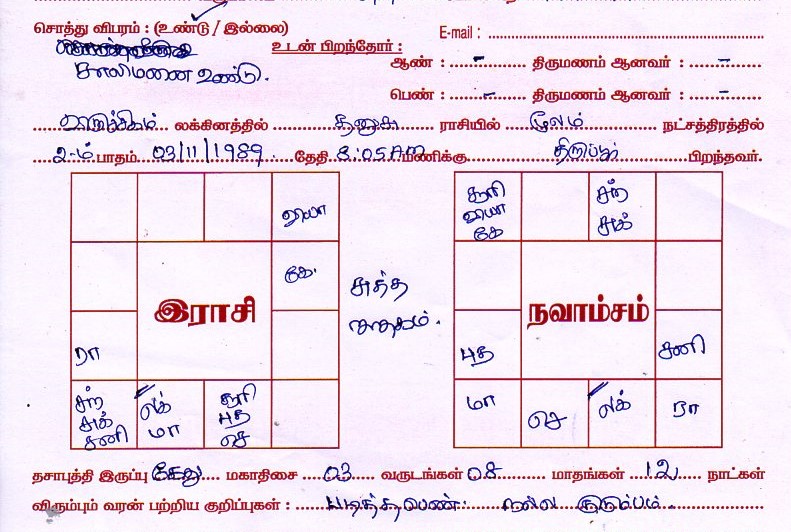 சொத்து விபரம் : (உண்டு / இல்லை)
E-mail :
காலிமனை உண்டு.
உடன் பிறந்தோர் :
ஆண் : - திருமணம் ஆனவர் : -
பெண் : - திருமணம் ஆனவர் : -
விருச்சிகம் லக்கினத்தில் தனுசு ராசியில் மூலம் நட்சத்திரத்தில்
2-ம் பாதம் 03/11/1989 தேதி 8:05 AM மணிக்கு திருப்பூர் பிறந்தவர்.
வியா
கே
இராசி
ரா
சந்
சுக்
சனி
லக்
மா
சூரி
புத
செ
சுத்த
ஜாதகம்.
சூரி
வியா
கே
சந்
சுக்
நவாம்சம்
புத
சனி
மா
செ
லக்
ரா
தசாபுத்தி இருப்பு கேது மகாதிசை 03 வருடங்கள் 08 மாதங்கள் 12 நாட்கள்
விரும்பும் வரன் பற்றிய குறிப்புகள் : படித்த பெண். நல்ல குடும்பம்.